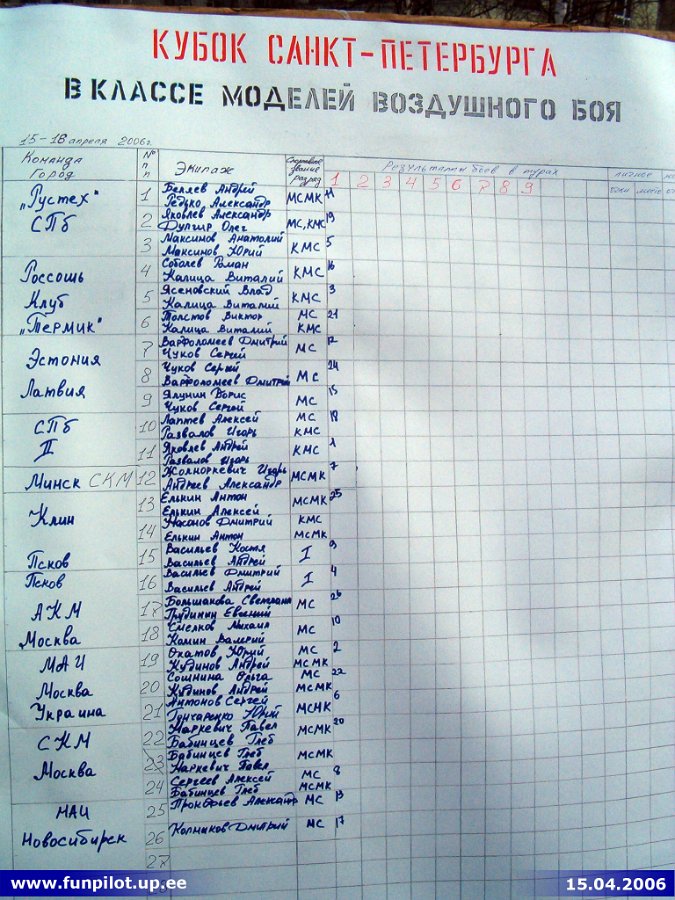 КУБОК САНКТ-ПЕТЕРБУРГА
В КЛАССЕ МОДЕЛЕЙ ВОЗДУШНОГО БОЯ
15-18 апреля 2006г.
Команда Город № п п Экипаж Спортивное звание разряд Результаты боев в турах личное
1 2 3 4 5 6 7 8 9
„Рустех" СПб
1 Беляев Андрей Редько Александр МСМК 11
2 Яковлев Александр Фунгир Олег МС,КМС 19
3 Максимов Анатолий Максимов Юрий КМС 5
Россошь Клуб „Термик"
4 Соболев Роман Калица Виталий КМС 16
5 Ясеновский Влад Калица Виталий КМС 3
6 Толстов Виктор МС 21
Калица Виталий КМС
Эстония Латвия
7 Варфоломеев Дмитрий Чуков Сергей МС 12
8 Чуков Сергей Варфоломеев Дмитрий МС 24
9 Ялунин Борис Чуков Сергей МС 15
СПб II
10 Лаптев Алексей МС 18
Развалов Игорь КМС
11 Яковлев Андрей Развалов Игорь КМС 1
Минск СКМ 12 Жолноркевич Игорь Андреев Александр МСМК 7
Клин
13 Елькин Антон Елькин Алексей МСМК 25
14 Насонов Дмитрий КМС
Елькин Антон МСМК
Псков 15 Васильев Костя Васильев Андрей I 9
Псков 16 Васильев Дмитрий Васильев Андрей I 4
АКМ Москва
17 Большакова Светлана Трудинин Евгений МС 26
18 Смелков Михаил Комин Валерий МС 10
МАИ Москва
19 Окатов Юрий МС 2
Кудинов Андрей МСМК
20 Сошнина Ольга МС 22
Кудинов Андрей МСМК
Украина 21 Антонов Сергей Гончаренко Юрий МСМК 6
СКМ Москва
22 Наркевич Павел Бабинцев Глеб МСМК 20
23 Бабинцев Глеб Наркевич Павел МСМК
24 Сергеев Алексей МС 8
Бабинцев Глеб МСМК
МАИ 25 Прокофьев Александр МС 13
Новосибирск 26 Колмиков Дмитрий МС 17
27
www.funpilot.up.ee
15.04.2006